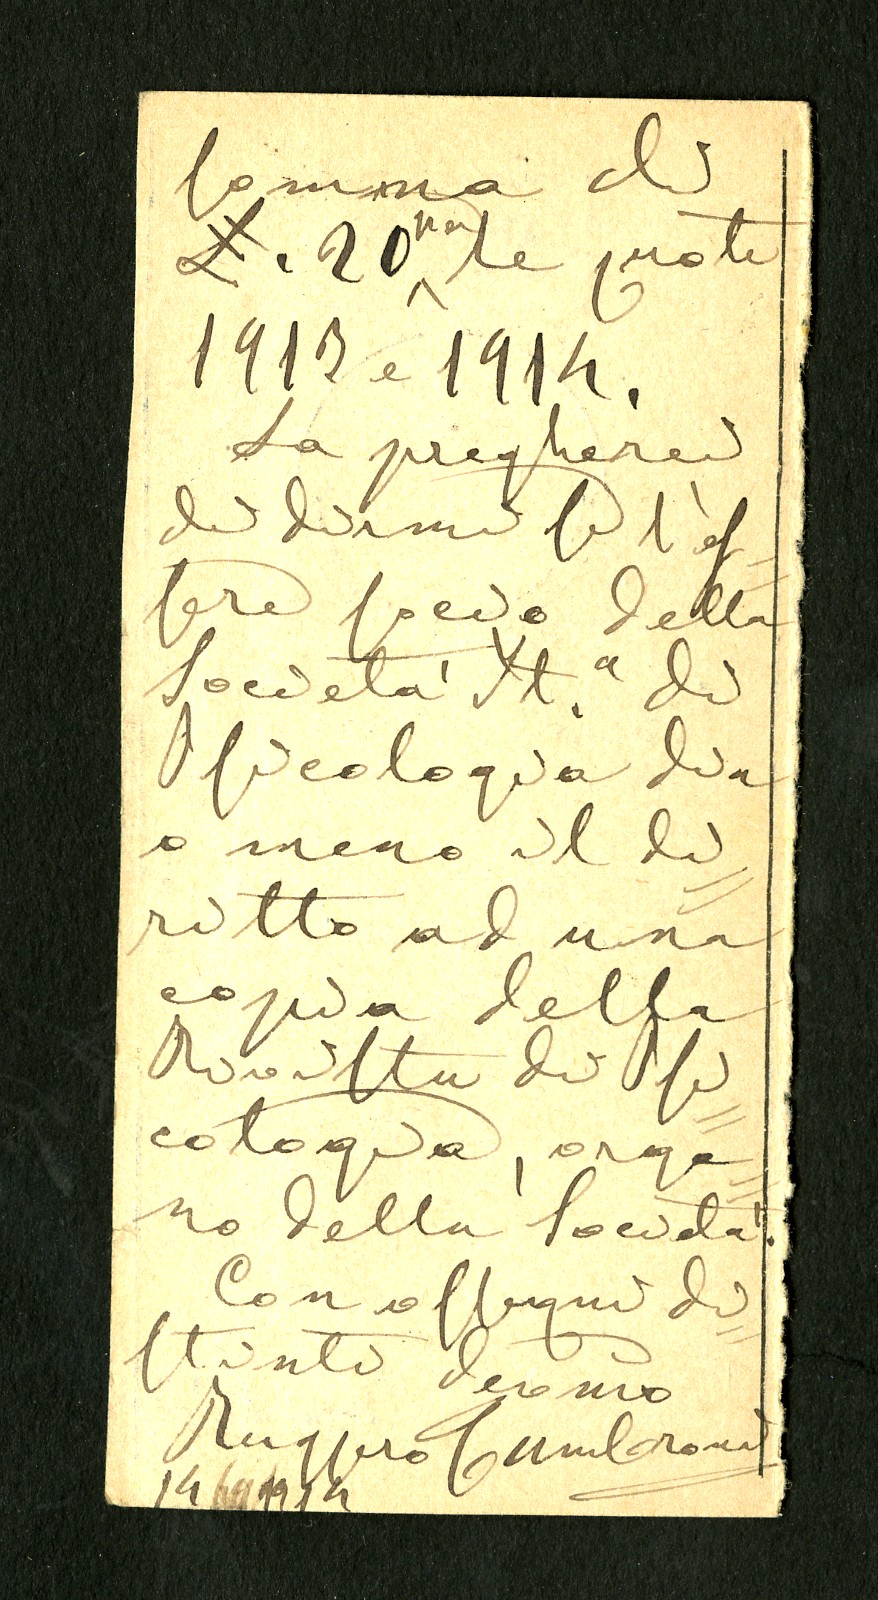 somma di
L. 20 per le quote
1913 e 1914.
La pregherei
di dirmi se l'es=
sere socio della
Società It.a di
Psicologia dia
o meno il di=
ritto ad una
copia della
Rivista di Psi=
cologia, orga=
no della Società.
Con ossequi di=
stinti devmo
Ruggero
14 1914